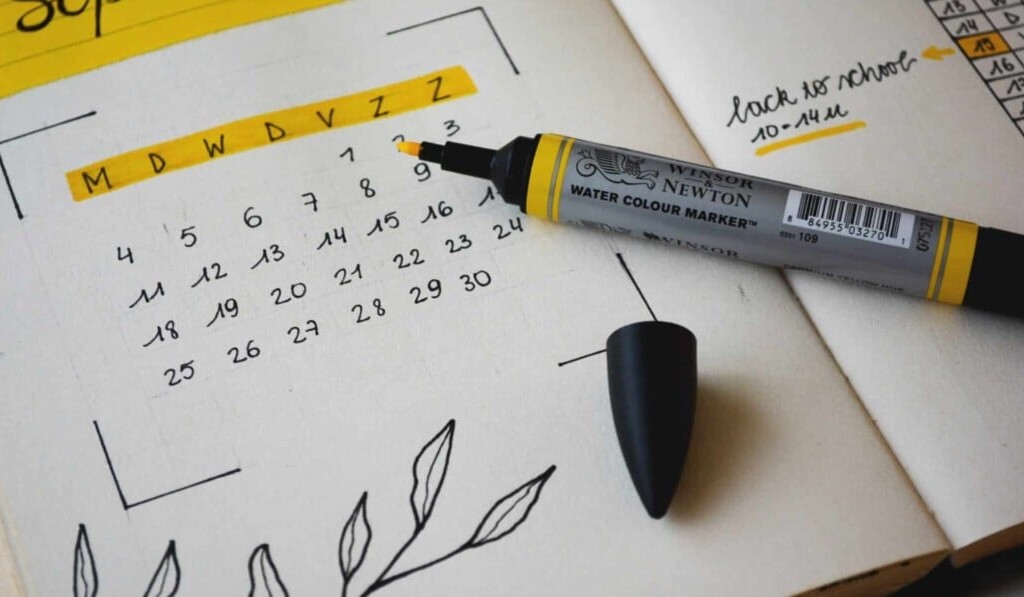 Sep
M D W D V Z Z
1 2 3
4 5 6 7 8 9
11 12 13 14 15 16
18 19 20 21 22 23 24
25 26 27 28 29 30
back to school
10-14u
13
14 D
15
16
WINSOR
&
NEWTON
WATER COLOUR MARKER™
8 84955 03270 1
109
WINSOR